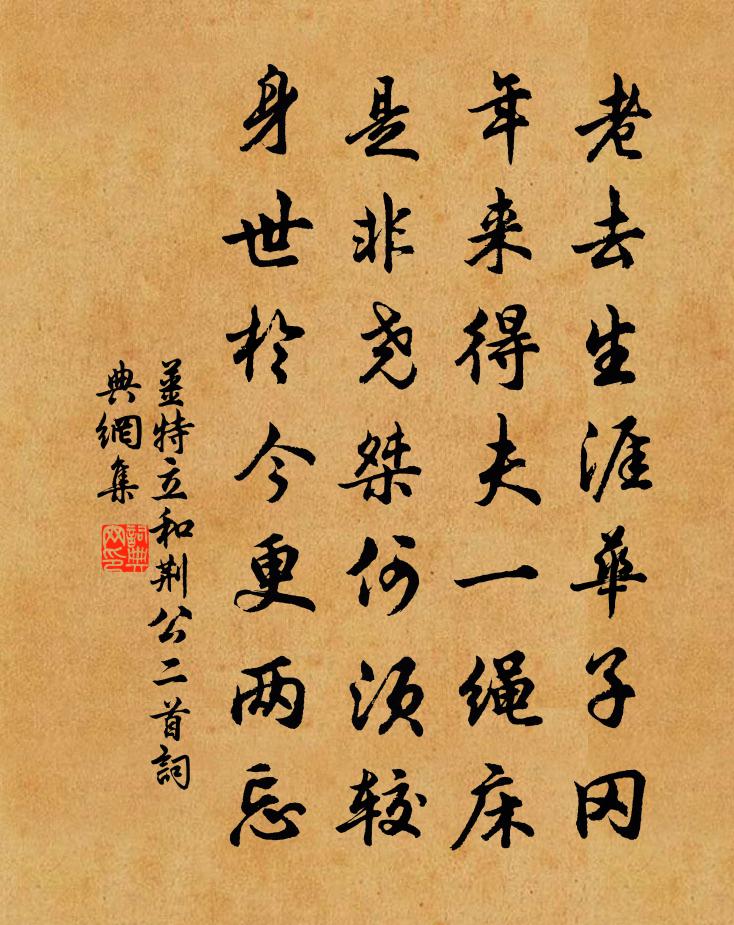 老去生涯华子冈
年来得夫一绳床
是非尧桀何须较
身世於今更两忘
姜特立和荆公二首詞
典網集
詞典网印